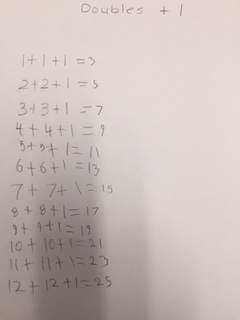 Doubles + 1
1+1+1=3
2+2+1=5
3+3+1=7
4+4+1=9
5+5+1=11
6+6+1=13
7+7+1=15
8+8+1=17
9+9+1=19
10+10+1=21
11+11+1=23
12+12+1=25